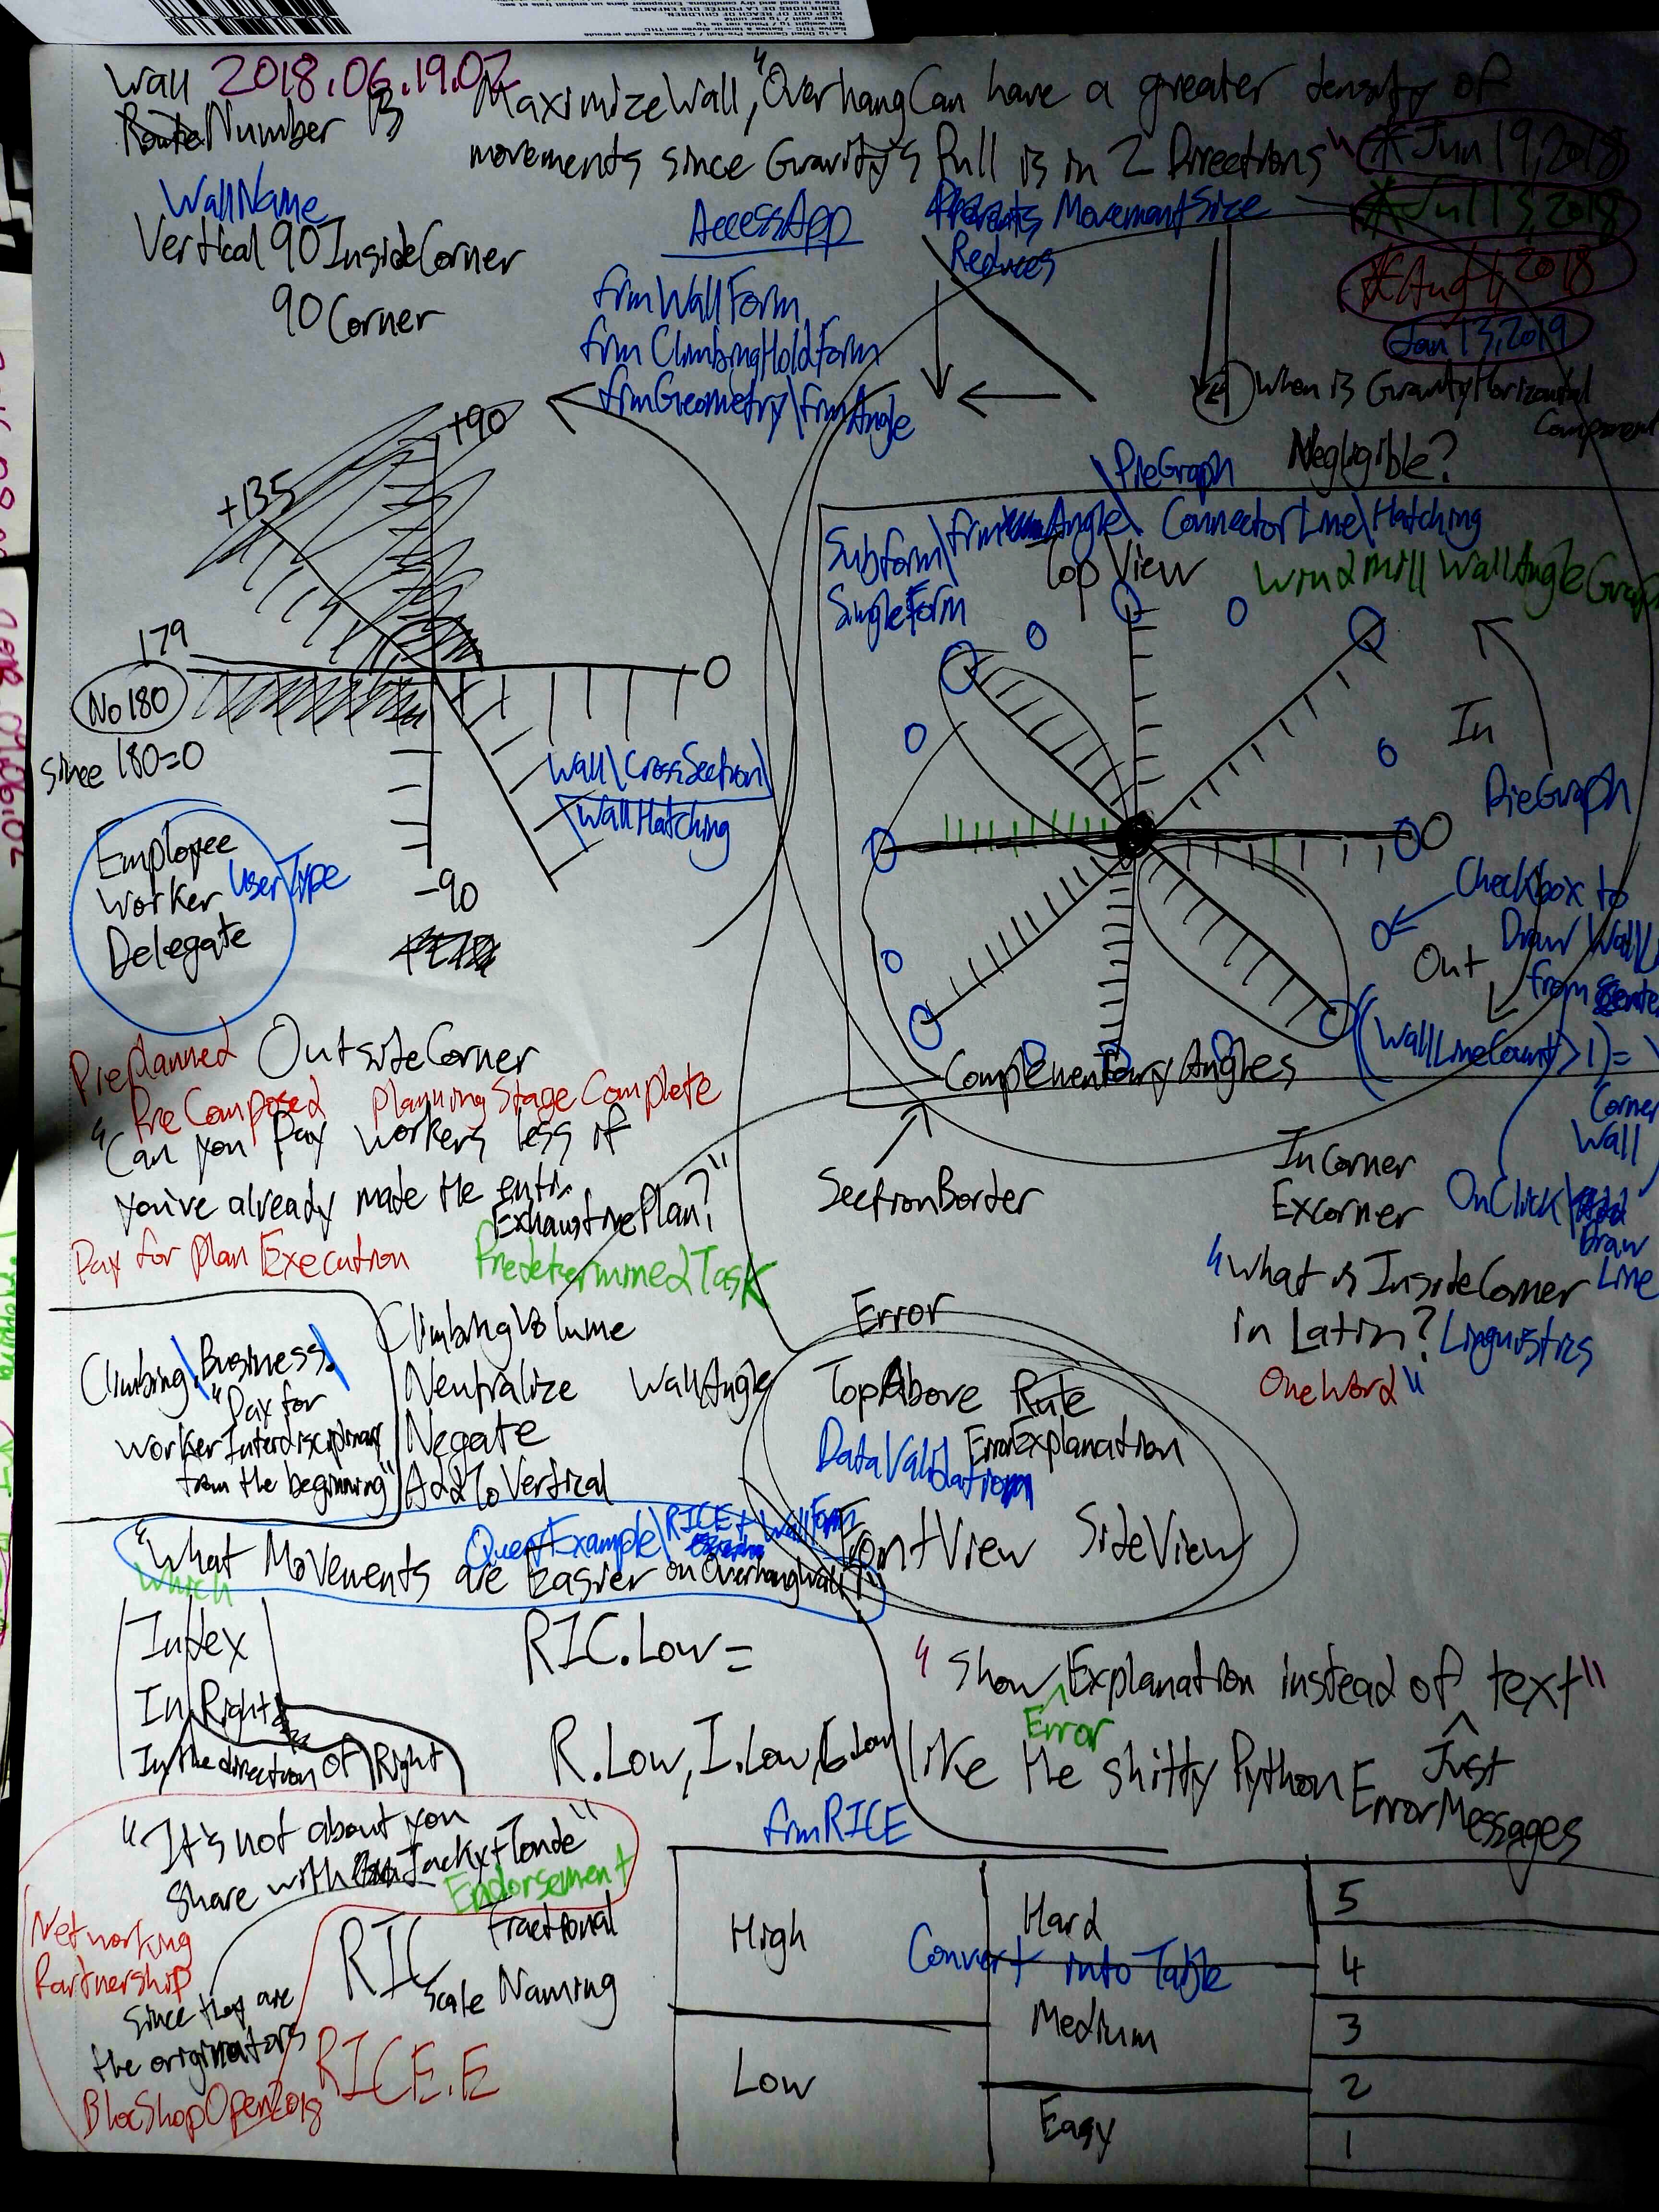 Wall 2018.06.19.02
Number B
MaximizeWall, "OverhangCan have a greater density of
movements since Gravity's Pull is in 2 Directions"
*Jun 19, 2018
*Jul 13, 2018
*Aug 4, 2018
Jan 13, 2019
WallName
Vertical90InsideCorner
90Corner
AccessApp
frmWallForm
frmClimbingHoldForm
frmGeometry\frmAngle
Prevents MovementSize
Reduces
When is GravityHorizontal
Component
Negligible?
+90
+135
179
0
No 180
since 180=0
-90
Wall\CrossSection\
WallHatching
\PieGraph
Subform\frm Angle\ ConnectorLine\Hatching
SingleForm
Top View
Windmill WallAngleGraph
In
PieGraph
0
Checkbox to
Draw WallL
from Cente
Out
(WallLineCount>1)=
Corner
Wall
OnClick\
Draw
Line
ComplementaryAngles
SectionBorder
InCorner
Excorner
"What is InsideCorner
in Latin? Linguistics
OneWord"
Employee
Worker
Delegate
UserType
Preplanned
OutsideCorner
PreComposed PlanningStageComplete
"Can you Pay workers less if
you've already made the entire
ExhaustivePlan?"
Pay for Plan Execution
PredeterminedTask
Climbing\Business\
"Pay for
WorkerInterdisciplinary
from the beginning"
ClimbingVolume
Neutralize WallAngle
Negate
AddToVertical
Error
TopAbove Rate
DataValidation
ErrorExplanation
FrontView SideView
QueryExample\RICE+WallForm
"What Movements are Easier on OverhangWall?"
Which
Index
InRight
In the direction of Right
RIC.Low=
R.Low, I.Low, C.Low
"Show Explanation instead of text"
Error
Just
like the shitty Python ErrorMessages
"It's not about you"
Share with Jackxt Tonde
Endorsement
Networking
Partnership
Since they are
the originators
BlocShopOpen2018
RIC
Fractional
Scale Naming
RICE.E
frmRICE
High
Low
Convert into Table
Hard
Medium
Easy
5
4
3
2
1